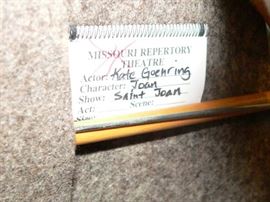 MISSOURI REPERTORY
THEATRE
Actor: Kate Goehring
Character: Joan
Show: Saint Joan
Act: Scene: